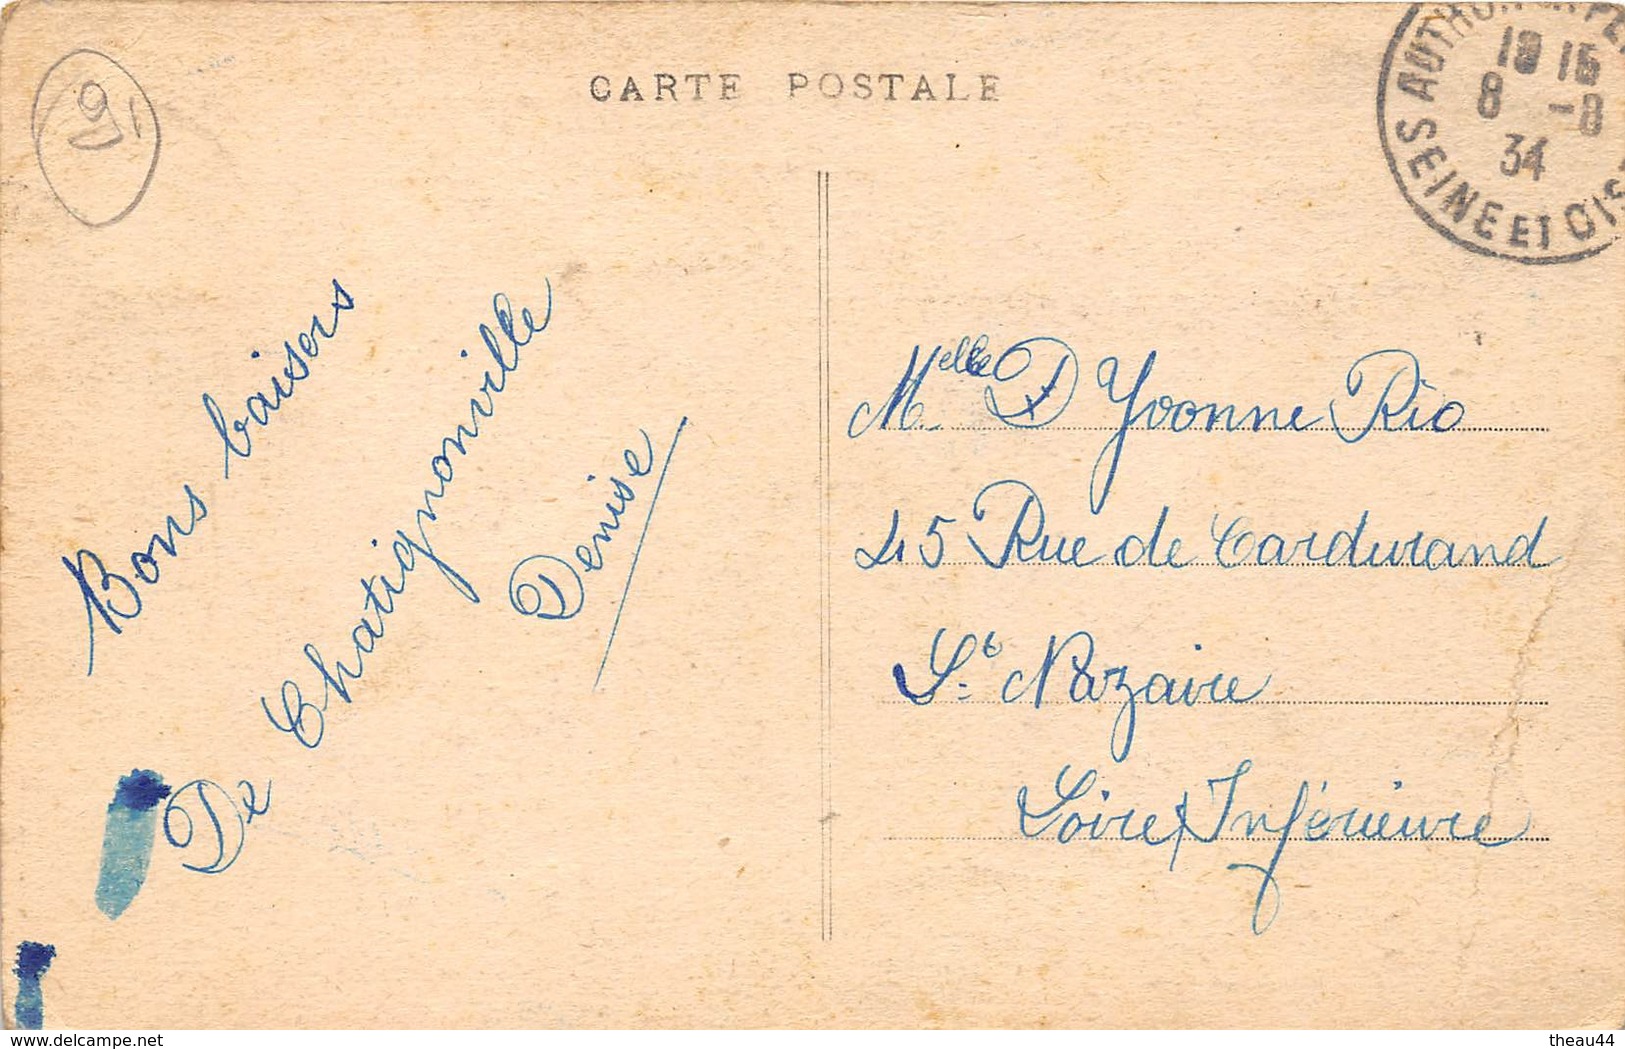 CARTE POSTALE
91
AUTHON
18 15
8 -8
34
SEINE ET OIS
Bons baisers
De Chatignonville
Denise
Melle D Yvonne Rio
45 Rue de Cardurand
St Nazaire
Loire Inférieure
www.delcampe.net
theau44